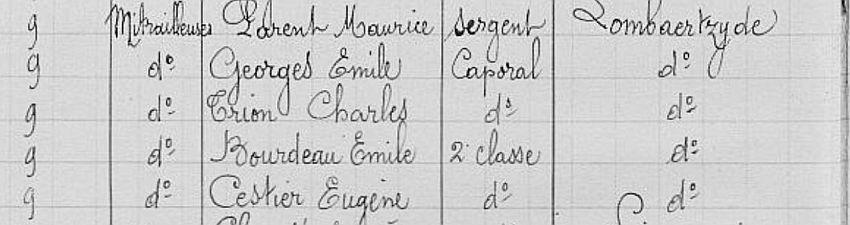 9 Mitrailleuses Lorent Maurice Sergent Lombaertzyde
9 dº Georges Emile Caporal dº
9 dº Trion Charles dº dº
9 dº Bourdeau Emile 2e classe dº
9 dº Cestier Eugène dº dº